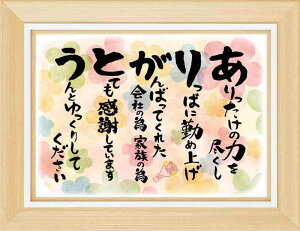 ありったけの力を
尽くし
りっぱに勤め上げ
がんばってくれた
会社の為 家族の為
とても感謝しています
うんとゆっくりして
ください